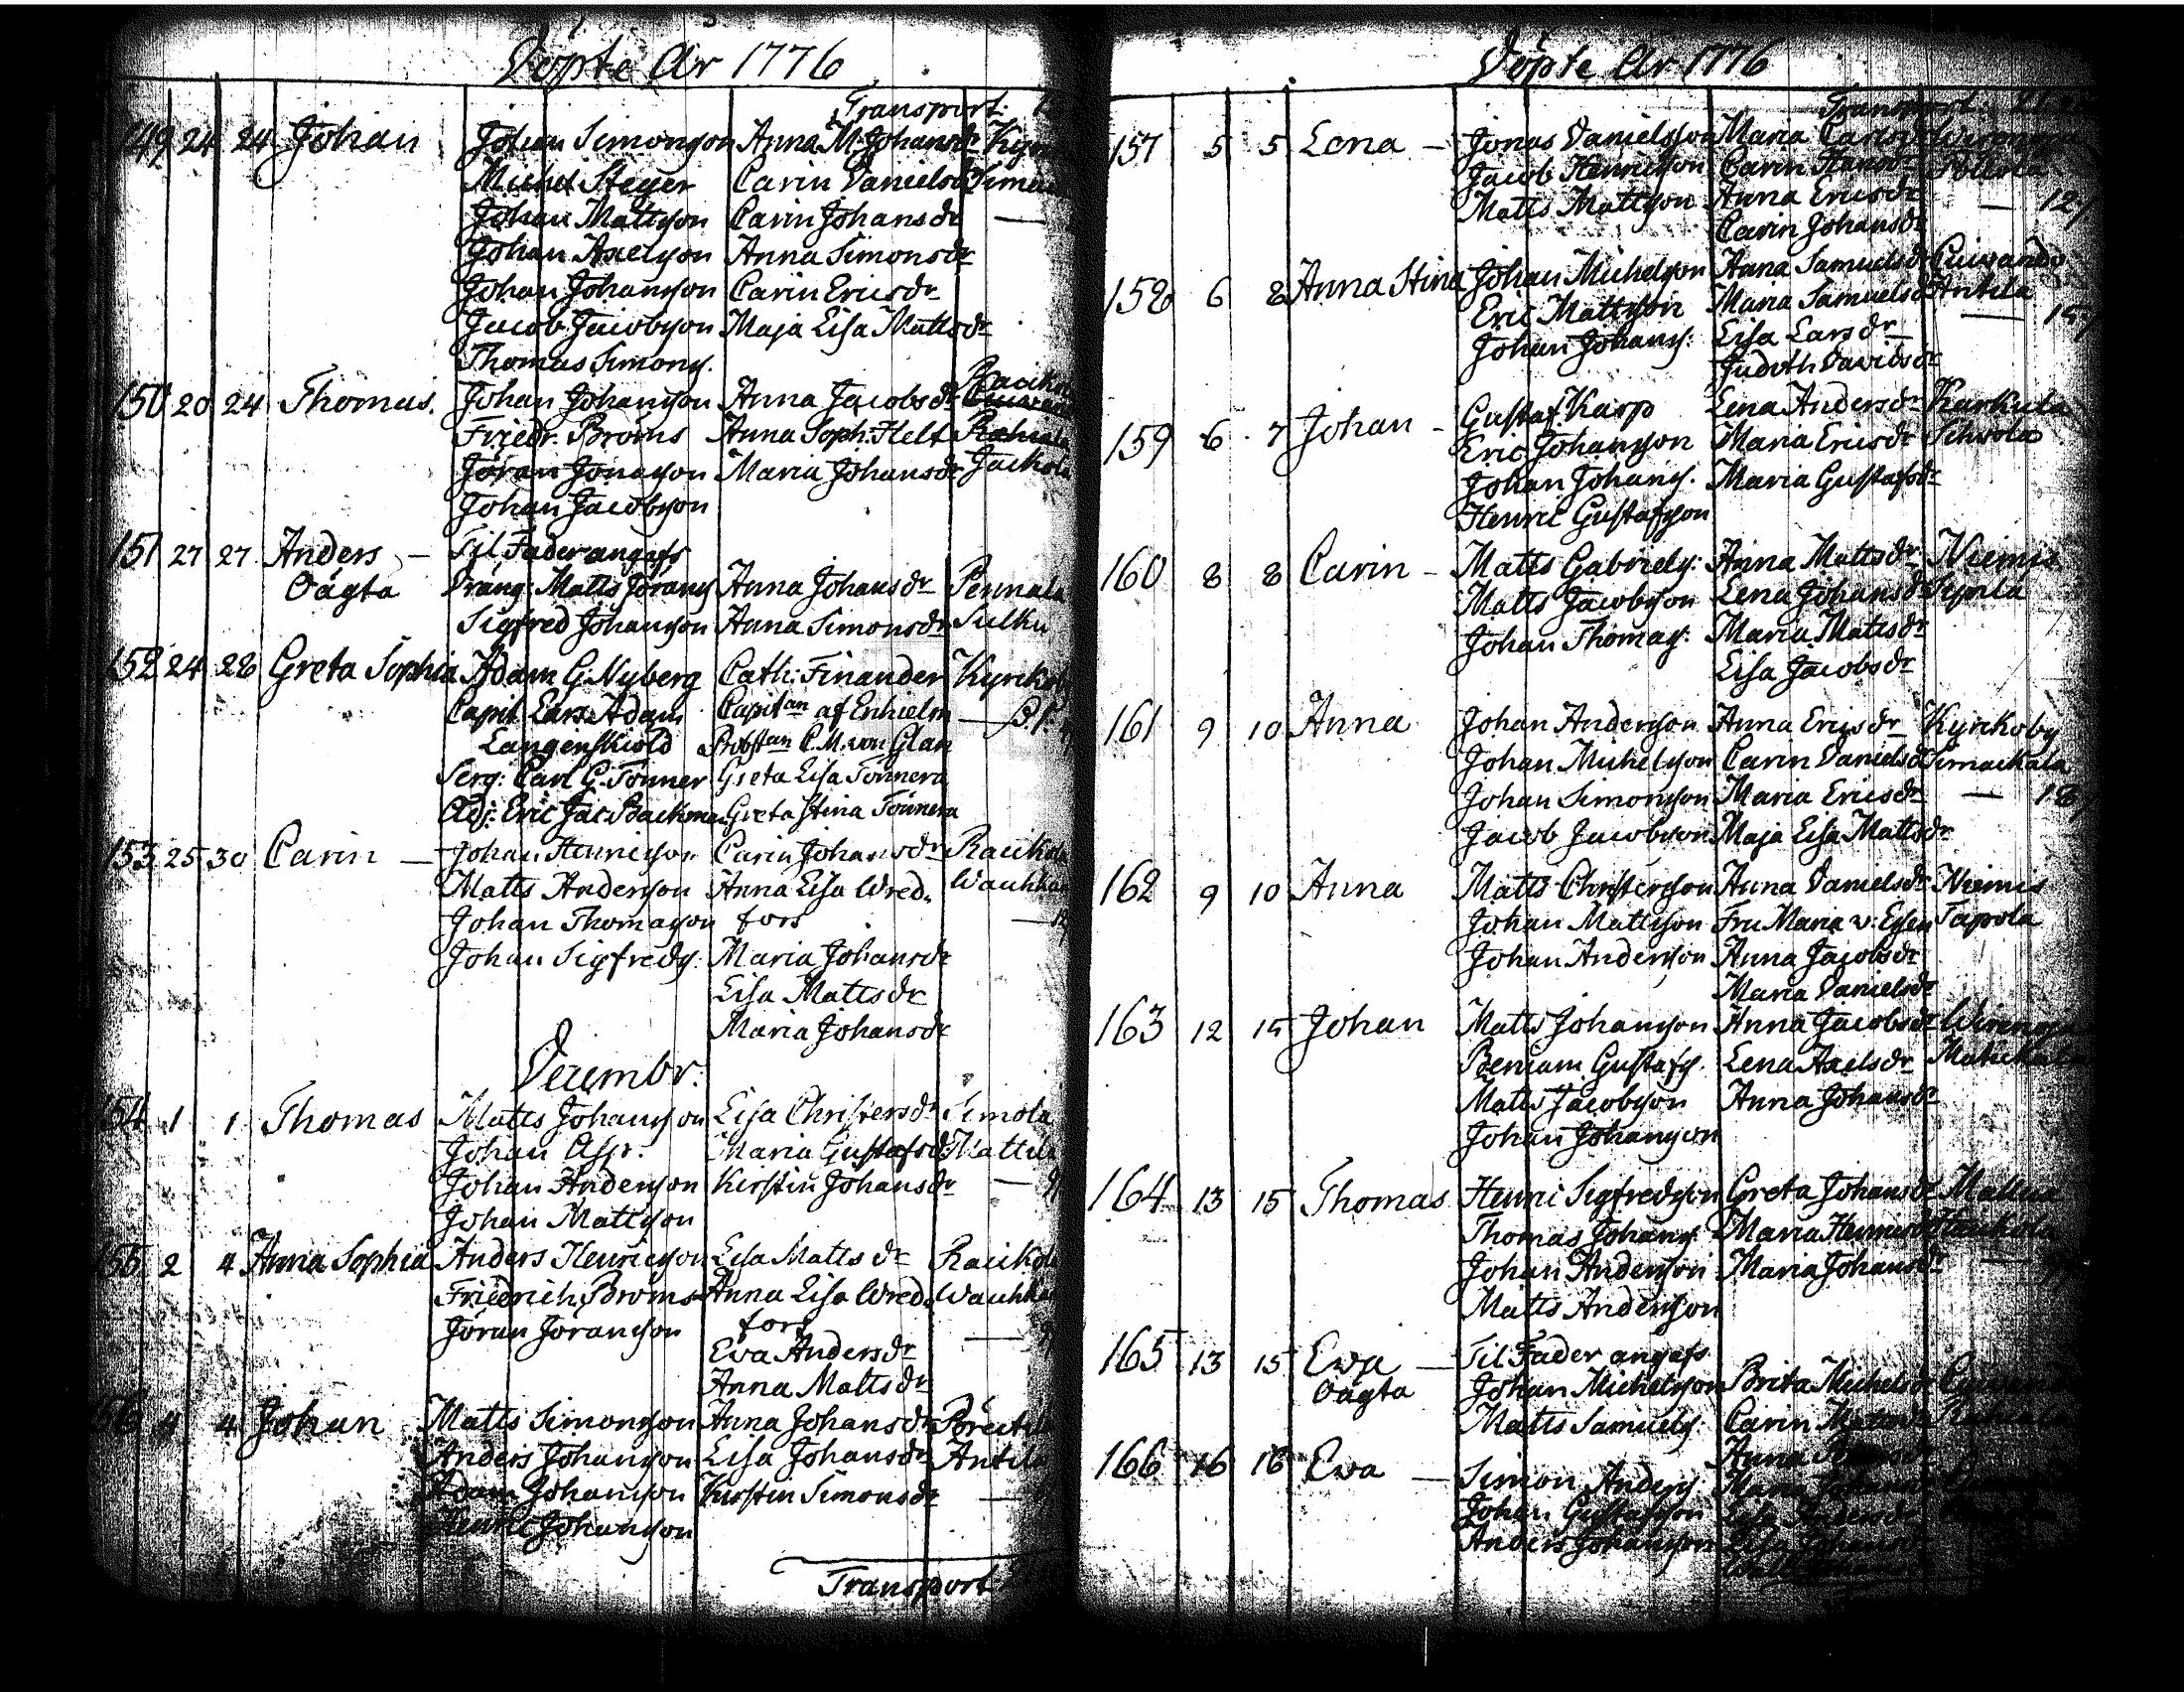 Döpte År 1776
Transport:
149 24 24 Johan Johan Simonsson Anna M. Johansdr
Michel Steger Carin Danielsdr
Johan Mattsson Carin Johansdr —
Johan Axelsson Anna Simonsdr
Johan Johansson Carin Ericsdr
Jacob Jacobsson Maja Lisa Mattsdr
Thomas Simonss.
150 20 24 Thomas. Johan Johansson Anna Jacobsdr
Friedr. Broms Anna Soph. Helt
Jöran Jonasson Maria Johansdr Jackola
Johan Jacobsson
151 27 27 Anders — Til Fader angafs
Oägta Dräng: Matts Jöranss Anna Johansdr Pennala
Sigfred Johansson Anna Simonsdr Sulku
152 24 28 Greta Sophia Adam G. Nyberg Cath: Finander Kyrckoby
Capit. Lars Adam Capitan af Enhielm —
Langenskiöld Probstan C. M. von Glan
Serg: Carl G. Tonner Greta Lisa Tonnera
Adj: Eric Jac. Backman Greta Stina Tonnera
153 25 30 Carin — Johan Henricsson Carin Johansdr Raukola
Matts Andersson Anna Lisa Wred.
Johan Thomasson fors
Johan Sigfredss. Maria Johansdr
Lisa Mattsdr
Maria Johansdr
Decembr:
154 1 1 Thomas Matts Johansson Lisa Christersdr Simola
Johan Asp. Maria Gustafsdr Mattila
Johan Andersson Kirstin Johansdr —
Johan Mattsson
155 2 4 Anna Sophia Anders Henricsson Lisa Mattsdr Raukola
Friedrich Broms Anna Lisa Wred.
Jöran Jöransson fors —
Eva Andersdr
Anna Mattsdr
156 4 4 Johan Matts Simonsson Anna Johansdr
Anders Johansson Lisa Johansdr Antila
Adam Johansson Kirstin Simonsdr —
Henric Johansson
Transport
Döpte År 1776
Transport:
157 5 5 Lena — Jonas Danielsson Maria
Jacob Henricsson Carin Hansdr
Matts Mattsson Anna Ericsdr —
Carin Johansdr
158 6 8 Anna Stina Johan Michelsson Anna Samuelsdr
Eric Mattsson Maria Samuelsdr Antila
Johan Johanss: Lisa Larsdr —
Judith Davidsdr
159 6 7 Johan — Gustaf Karp Lena Andersdr Karkula
Eric Johansson Maria Ericsdr
Johan Johanss. Maria Gustafsdr
Henric Gustafsson
160 8 8 Carin — Matts Gabrielss: Anna Mattsdr Niemis
Matts Jacobsson Lena Johansdr Sipila
Johan Thomass: Maria Mattsdr
Lisa Jacobsdr
161 9 10 Anna Johan Andersson Anna Ericsdr Kyrckoby
Johan Michelsson Carin Danielsdr Simackala
Johan Simonsson Maria Ericsdr —
Jacob Jacobsson Maja Lisa Mattsdr
162 9 10 Anna Matts Christersson Anna Danielsdr Niemis
Johan Mattsson Fru Maria v. Essen Tapola
Johan Andersson Anna Jacobsdr
Maria Danielsdr
163 12 15 Johan Matts Johansson Anna Jacobsdr
Beniam. Gustafss. Lena Axelsdr
Matts Jacobsson Anna Johansdr
Johan Johansson
164 13 15 Thomas Henric Sigfredsson Greta Johansdr
Thomas Johanss. Maria Henricsdr
Johan Andersson Maria Johansdr
Matts Andersson
165 13 15 Ewa — Til Fader angafs
Oägta Johan Michelsson Brita Michelsdr
Matts Samuelss. Carin
Anna
166 16 16 Ewa — Simon Anderss. Maria
Johan Gustafsson Lisa Andersdr
Anders Johansson Lisa Johansdr